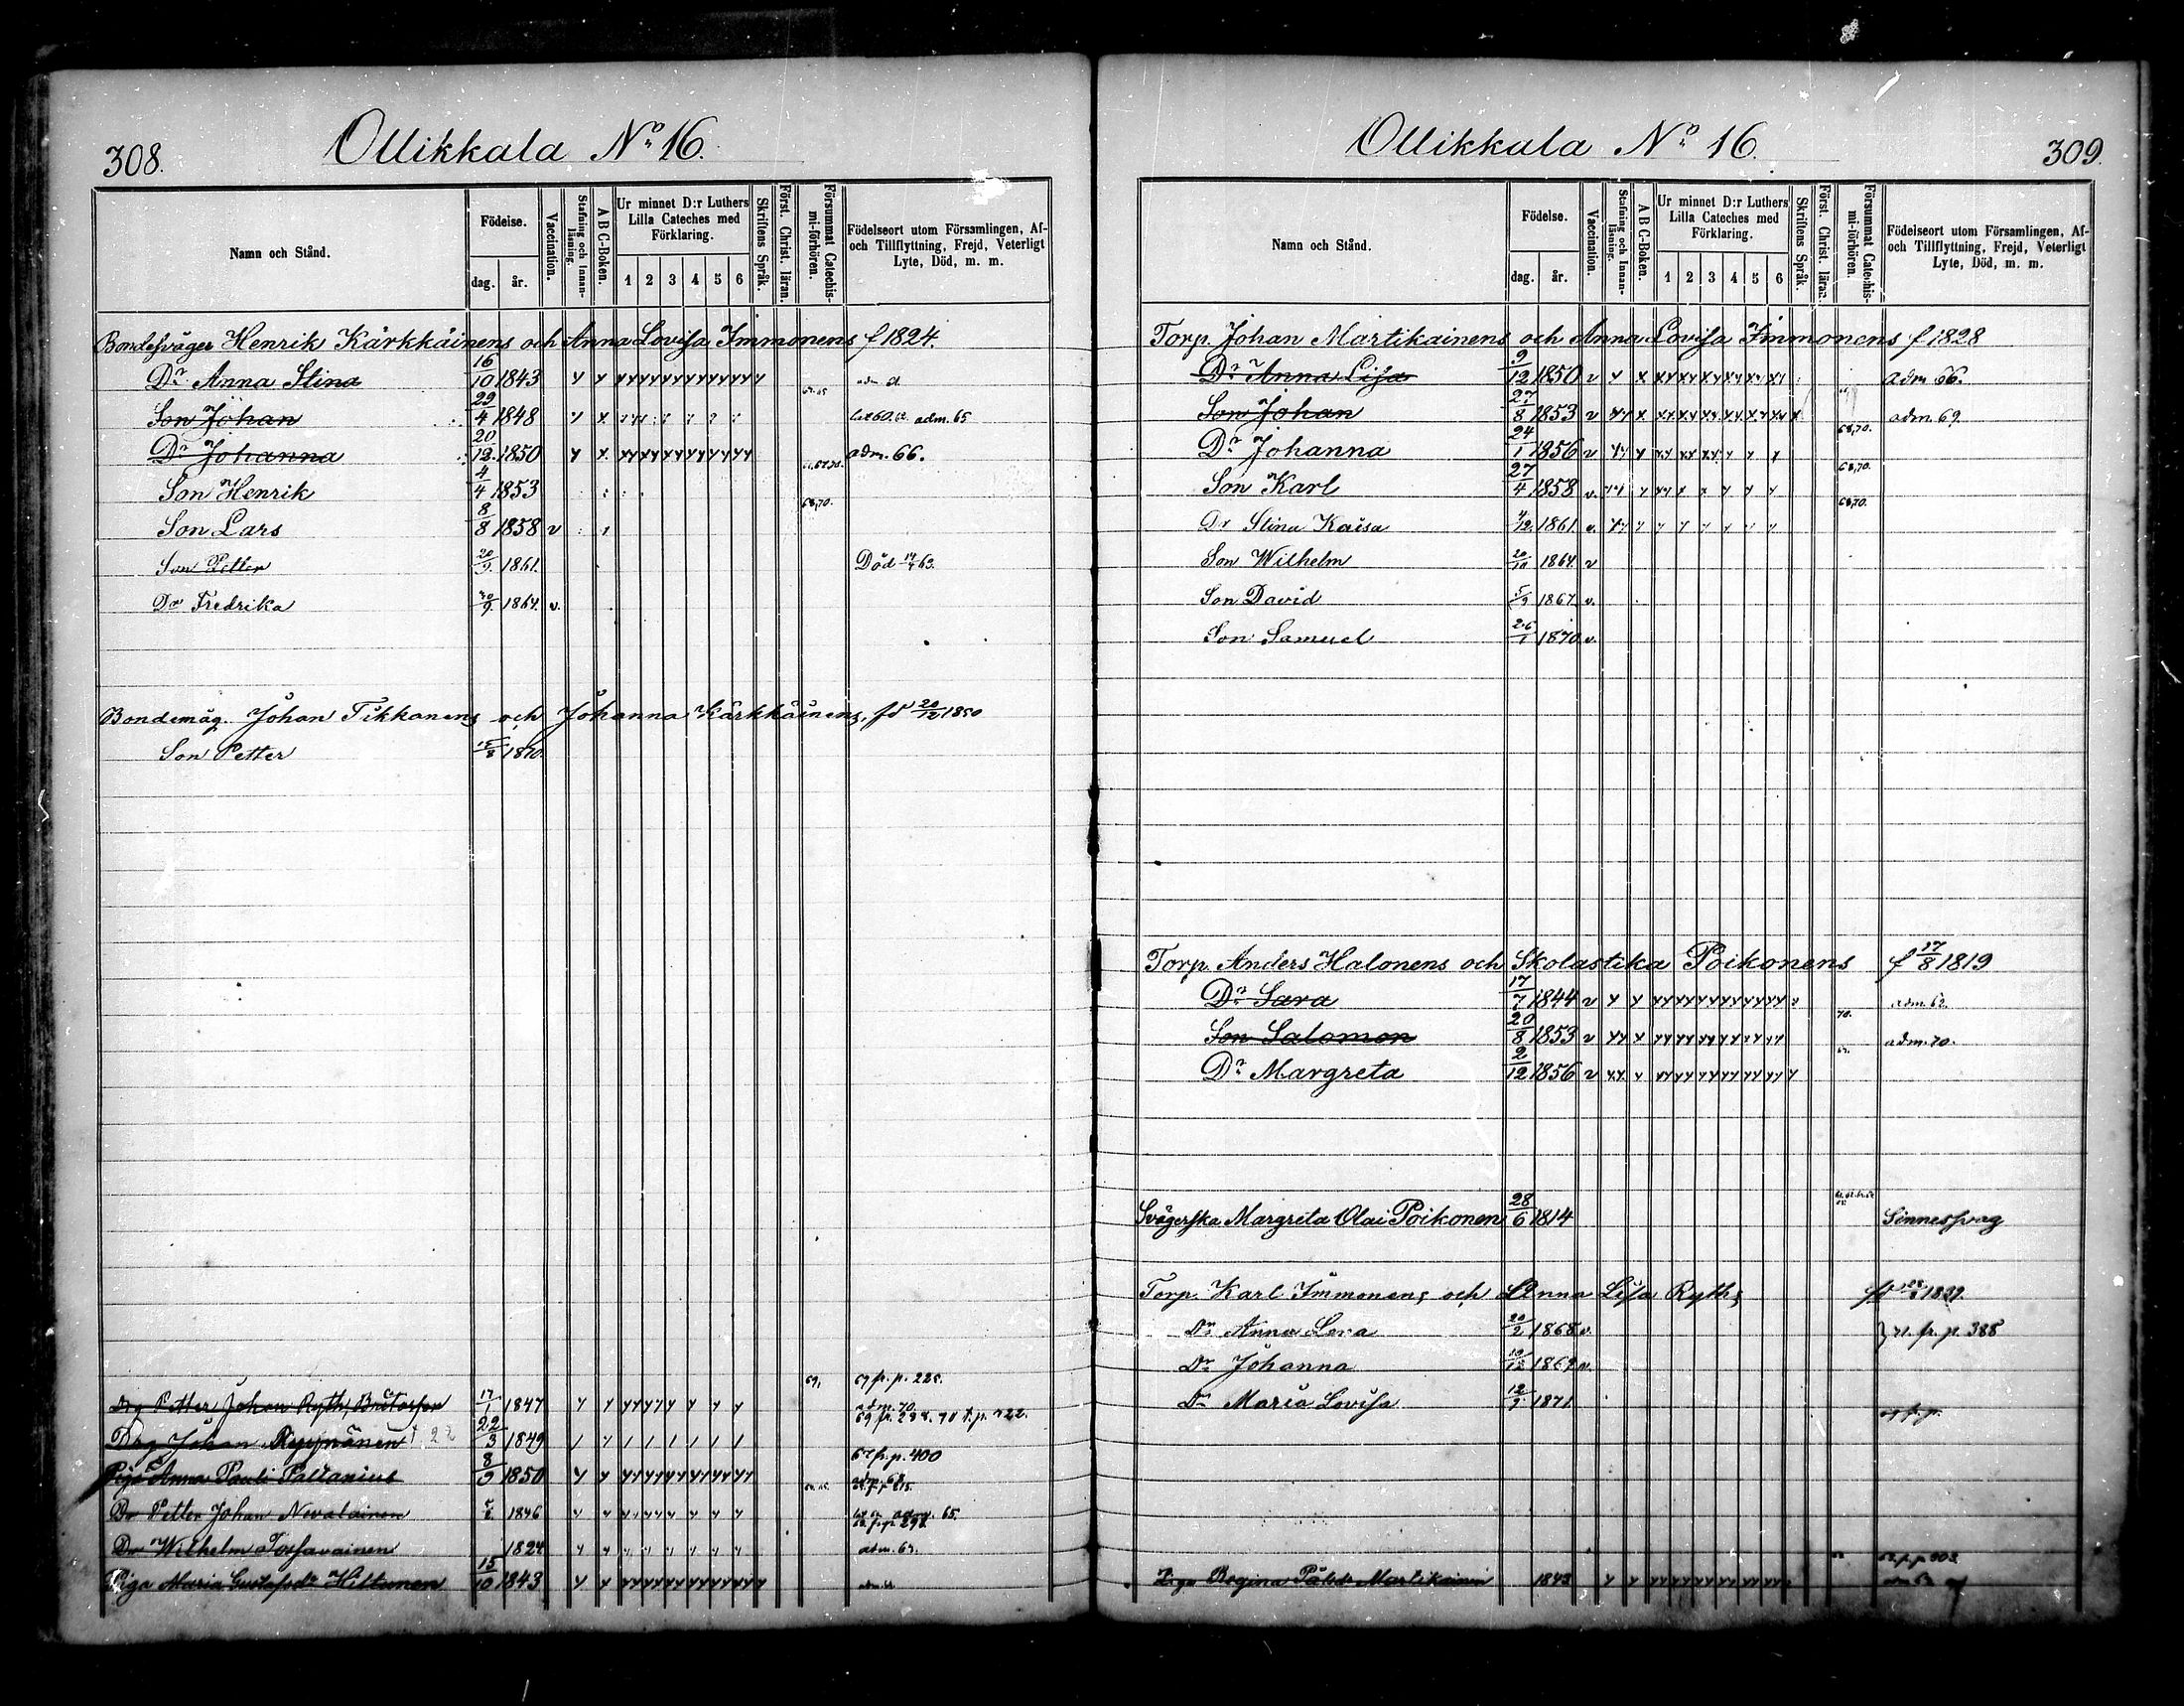 308.
Ollikkala No 16.
Namn och Stånd.
Födelse.
dag.
år.
Vaccination.
Stafning och Innan-läsning.
A B C-Boken.
Ur minnet D:r Luthers Lilla Cateches med Förklaring.
1 2 3 4 5 6
Skriftens Språk.
Först. Christ. läran.
Försummat Catechis-mi-förhören.
Födelseort utom Församlingen, Af- och Tillflyttning, Frejd, Veterligt Lyte, Död, m. m.
Bondesväger Henrik Kärkkäinens och Anna Lovisa Immonens f 1824.
Dr Anna Stina 16/10 1843
Son Johan 29/4 1848 adm. 65
Dr Johanna 20/12 1850 adm. 66.
Son Henrik 4/4 1853
Son Lars 8/8 1858 v 68,70.
Son Petter 20/9 1861. Död
Dr Fredrika 9 1864. v.
Bondemåg. Johan Tikkanens och Johanna Kärkkäinens, fd 20/12 1850
Son Petter 1870.
69 fr. p. 225.
Drg Petter Johan Ryth, 17/1 1847 adm. 70.
Drg Johan Ryynänen 22/3 1849
67 fr. p. 400
Piga Anna Pauli 8/9 1850
Dr Petter Johan Nevalainen 1846 65.
Dr Wilhelm Tossavainen 1824
Piga Maria Gustafsdr Hiltunen 15/10 1843
309.
Ollikkala No 16.
Namn och Stånd.
Födelse.
dag.
år.
Vaccination.
Stafning och Innan-läsning.
A B C-Boken.
Ur minnet D:r Luthers Lilla Cateches med Förklaring.
1 2 3 4 5 6
Skriftens Språk.
Först. Christ. läran.
Försummat Catechis-mi-förhören.
Födelseort utom Församlingen, Af- och Tillflyttning, Frejd, Veterligt Lyte, Död, m. m.
Torp. Johan Martikainens och Anna Lovisa Immonens f 1828
Dr Anna Lisa 9/12 1850 v adm. 66.
Son Johan 27/8 1853 v adm. 69.
Dr Johanna 24/1 1856 v 68,70.
Son Karl 27/4 1858 v. 68,70.
Dr Stina Kaisa 4/12 1861 v. 68,70.
Son Wilhelm 20/10 1864. v
Son David 5/9 1867. v.
Son Samuel 26/1 1870. v.
Torp. Anders Halonens och Skolastika Poikonens f 17/8 1819
Dr Sara 17/7 1844 v adm. 62.
Son Salomon 20/8 1853 v 70. adm. 70.
Dr Margreta 2/12 1856 v
Svägerska Margreta Olai Poikonen 28/6 1814 Sinnessvag
Torp. Karl Immonens och Anna Lisa Ryths 1829.
Dr Anna Lena 20/2 1868 v. } 71. fr. p. 388
Dr Johanna 1869 v.
Dr Maria Lovisa 1871.
Piga Regina Pålsdr Martikainen 1843